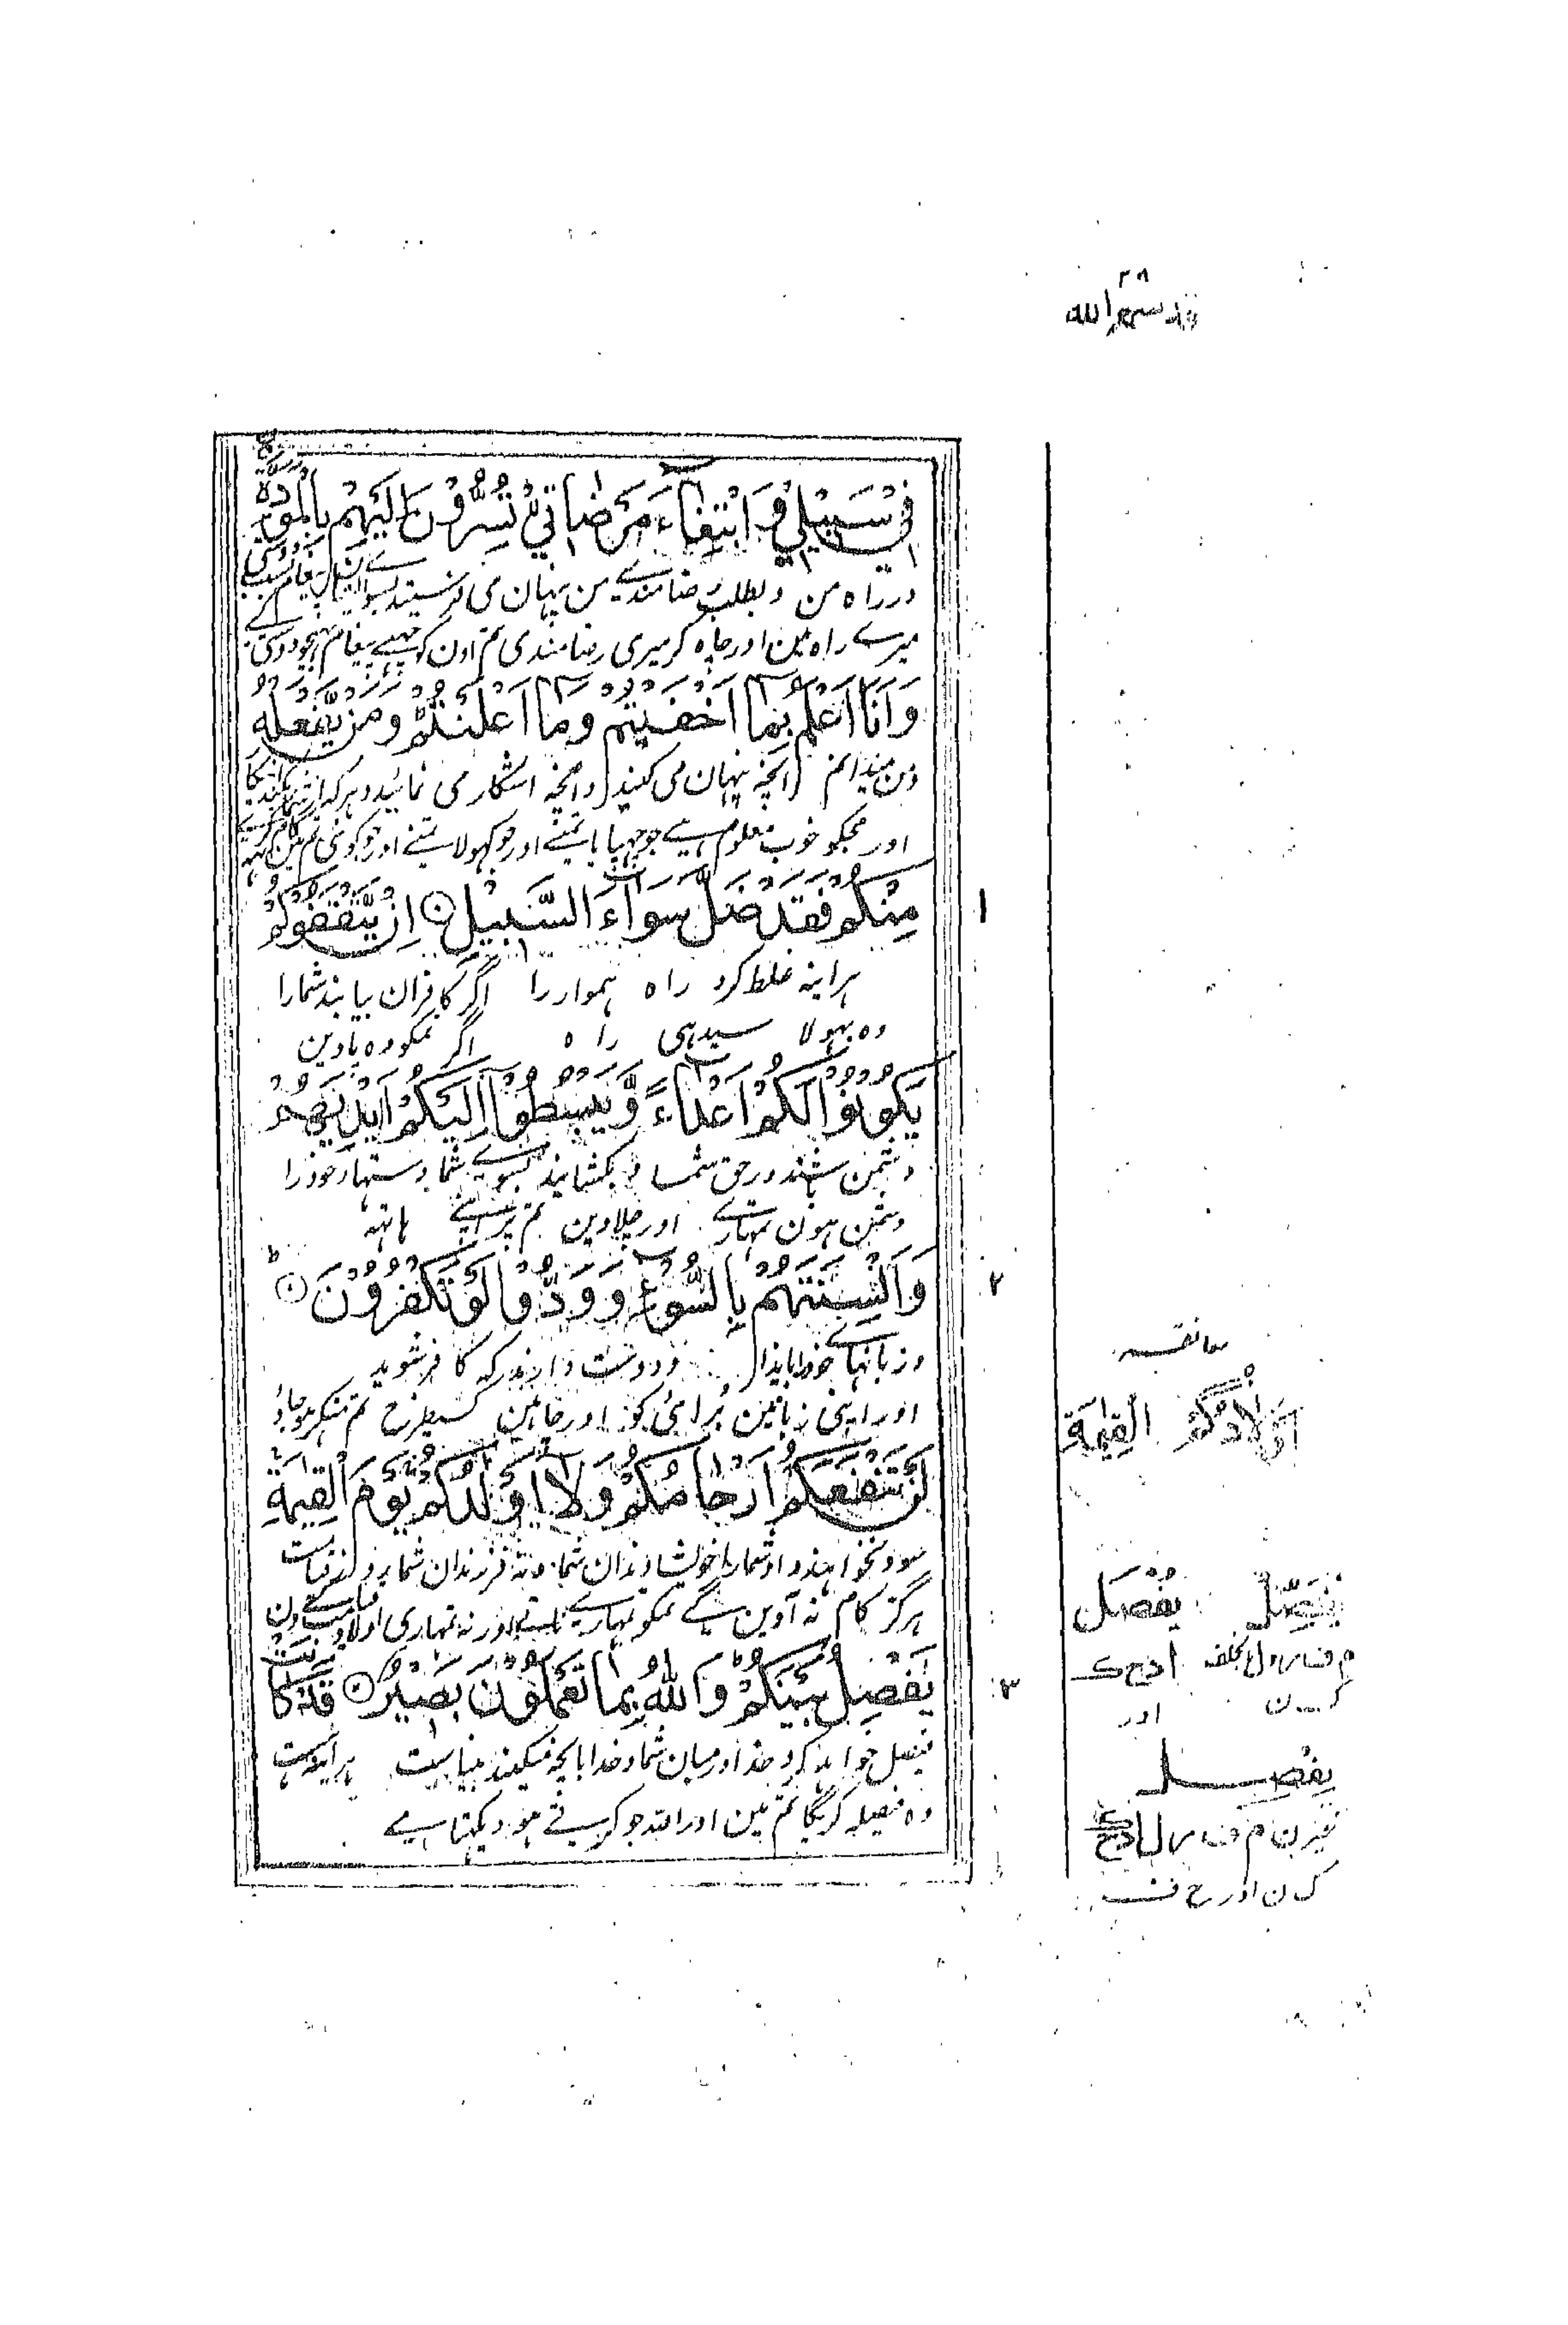 ٢٨
قد سمع الله
فِيْ سَبِيْلِيْ وَ ابْتِغَآءَ مَرْضَاتِيْ تُسِرُّوْنَ اِلَيْهِمْ بِالْمَوَدَّةِ
در راه من و بطلب رضامندے من پنهان می فرستید بسوے ایشان پیغام بسبب دوستی
میرے راہ مین اور چاہ کر میری رضامندی تم اون کو چہپے پیغام بہیجو دوستی کے
وَ اَنَا اَعْلَمُ بِمَا اَخْفَيْتُمْ وَمَا اَعْلَنْتُمْ وَمَنْ يَّفْعَلْهُ
و من میدانم آنچه پنهان می کنید و آنچه آشکار می نمائید و هر که از شما بکند
اور مجکو خوب معلوم ہے جو چہپایا تمنے اور جو کہولا تمنے اور جو کوئی تم مین یہہ کام کرے
مِنْكُمْ فَقَدْ ضَلَّ سَوَآءَ السَّبِيْلِ اِنْ يَّثْقَفُوْكُمْ
١
هر اینه غلط کرد راه هموار را اگر کافران بیابند شمارا
وہ بہولا سیدہی راہ اگر تمکو وہ پاوین
يَكُوْنُوْا لَكُمْ اَعْدَآءً وَّ يَبْسُطُوْا اِلَيْكُمْ اَيْدِيَهُمْ
دشمن باشند در حق شما و بکشایند بسوے شما دستهاے خود را
دشمن ہون تمہارے اور چلاوین تم پر اپنے ہاتہہ
وَ اَلْسِنَتَهُمْ بِالسُّوْٓءِ وَ وَدُّوْا لَوْ تَكْفُرُوْنَ ط
٢
و زبانهاے خود بایذا و دوست دارند که کافر شوید
اور اپنی زبانین برائی کو اور چاہین کسیطرح تم منکر ہو جاؤ
معانقه
لَنْ تَنْفَعَكُمْ اَرْحَامُكُمْ وَلَا اَوْلَدُكُمْ يَوْمَ الْقِيٰمَةِ
اَوْلَادُكُمْ الْقِيٰمَةِ
سود نخواهند داد شمارا خویشاوندان شما و نه فرزندان شما بروز قیامت
ہرگز کام نہ آوین گے تمکو تمہارے ناتے اور نہ تمہاری اولاد قیامت کے دن
يَفْصِلُ بَيْنَكُمْ وَ اللهُ بِمَا تَعْمَلُوْنَ بَصِيْرٌ قَدْ كَانَتْ
٣
فیصل خواهد کرد خدا درمیان شما و خدا بآنچه میکنید بیناست هر اینه هست
وہ فیصلہ کریگا تم مین اور اللہ جو کرتے ہو دیکہتا ہے
يُفَصِّلُ يُفْصَل
اور
يُفَصِّل